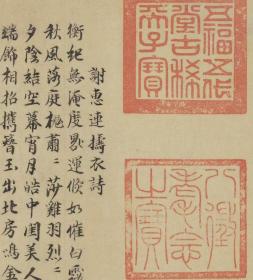 五福五代
堂古稀
天子寶
八徵
耄念
之寶
謝惠連擣衣詩
衡紀無淹度晷運倐如催白露
秋風落庭槐肅〻莎雞羽烈〻
夕陰結空幕宵月皓中閨美人
端飾相招攜簪玉出北房鳴金